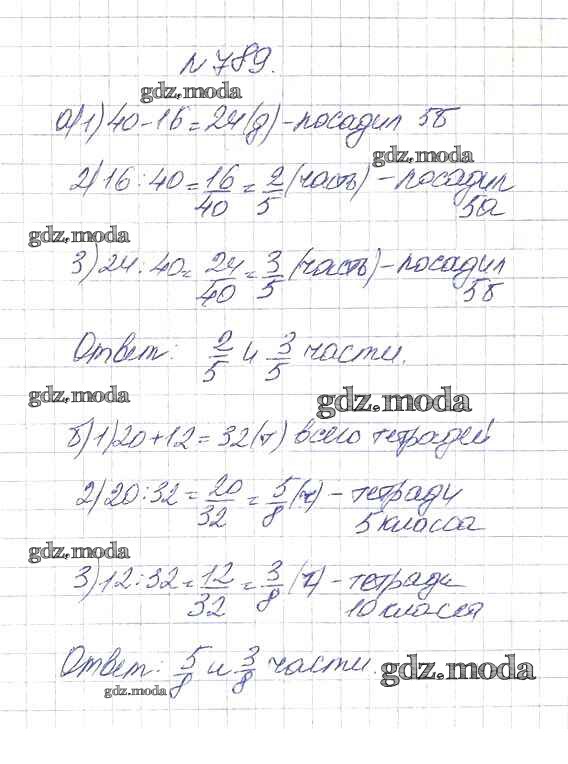 №789.
gdz.moda
а) 1) 40-16=24(д) - посадил 5б
gdz.moda
2) 16:40=16/40=2/5 (часть) - посадил
5а
gdz.moda
3) 24:40=24/40=3/5 (часть) - посадил
5б
Ответ: 2/5 и 3/5 части.
gdz.moda
gdz.moda
б) 1) 20+12=32(т) всего тетрадей
2) 20:32=20/32=5/8 (ч) - тетради
5 класса
gdz.moda
3) 12:32=12/32=3/8 (ч) - тетради
10 класса
Ответ: 5/8 и 3/8 части.
gdz.moda
gdz.moda